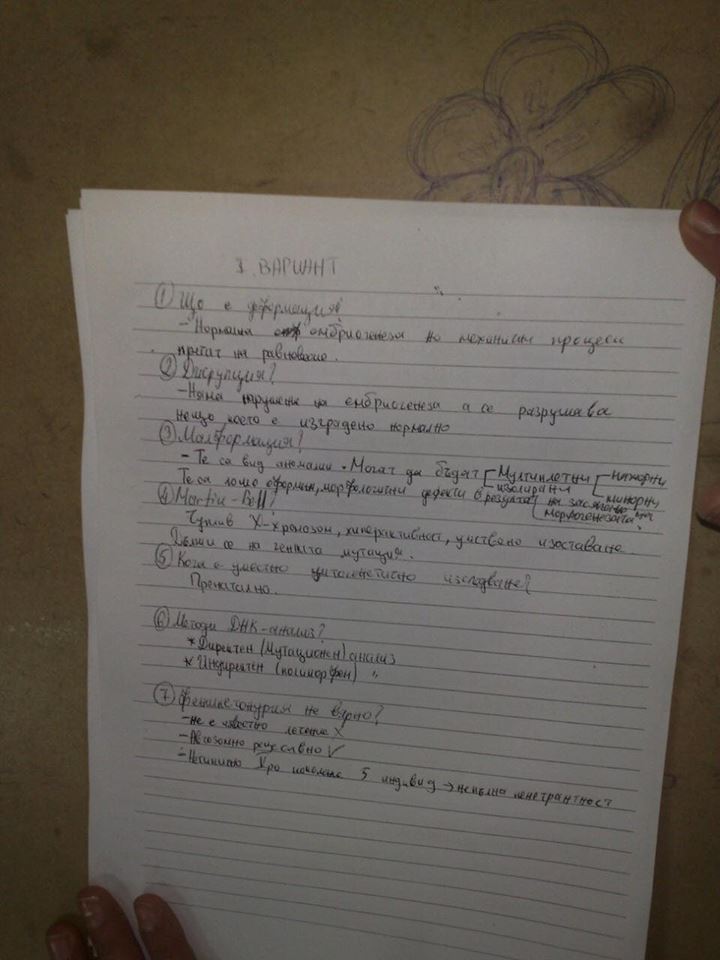 I. ВАРИАНТ
① Що е деформация?
- Нормална ембриогенеза но механични процеси
пречат на равновесие.
② Дисрупция?
- Няма нарушение на ембриогенеза а се разрушава
нещо което е изградено нормално
③ Малформация?
- Те са вид аномалии. Могат да бъдат Мултиплетни
изолирани
минорни
Те са лошо оформени, морфологични дефекти в резултат на засягане на
морфогенезата.
④ Martin-Bell?
Чуплив Х-хромозом, хиперактивност, умствено изоставане
Дължи се на генната мутация.
⑤ Кога е уместно цитогенетично изследване?
Пренатално.
⑥ Методи ДНК-анализ?
* Директен (Мутационен) анализ
* Индиректен (полиморфен) "
⑦ Фенилкетонурия не вярно?
- Не е известно лечение X
- Автозомно рецесивно ✓
- 5 индивид → непълна пенетрантност